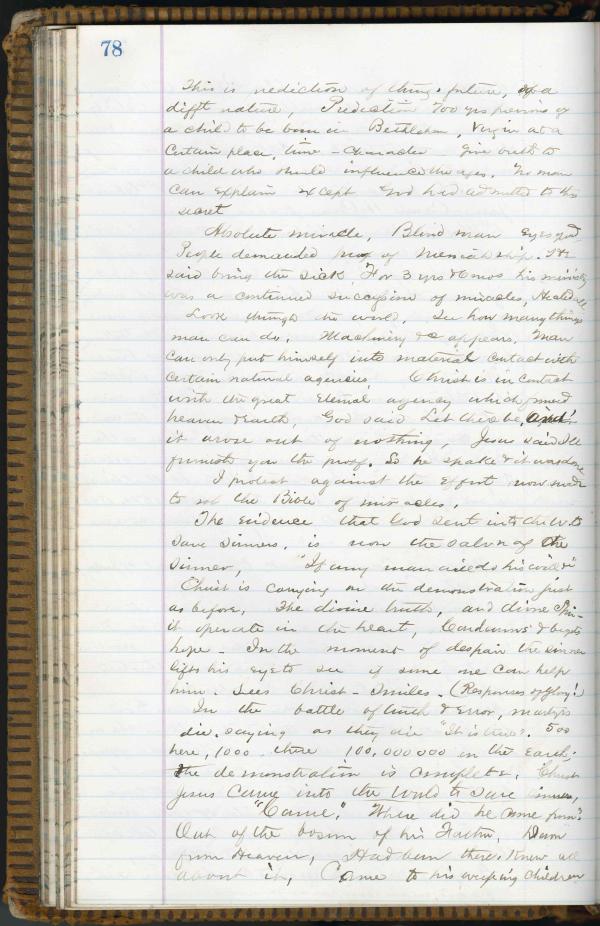 78
This is prediction of things future, of a
difft nature, Prediction 700 yrs previous of
a child to be born in Bethlehem, Virgin at a
certain place, time - character give birth to
a child who should influence the ages. No man
can explain except God had admitted to His
secret
Absolute miracle, Blind man eyes good
People demanded proof of Messiahship. He
said bring the sick. For 3 yrs & 6 mos his ministry
was a continued succession of miracles, Healed all
Look through the world. See how many things
man can do. Machinery &c appears. Man
can only put himself into material contact with
certain natural agencies. Christ is in contact
with the great Eternal agency which formed
heaven & earth, God said Let there be, and
it arose out of nothing, Jesus said I'll
furnish you the proof. So he spake & it was done
I protest against the effort now made
to rob the Bible of miracles.
The evidence that God sent into the W. to
save sinners, is now the salvn of the
sinner, "If any man will do his will &"
Christ is carrying on the demonstration just
as before. The divine truth, and divine Spir-
it operate in the heart, Condemns & begets
hope - In the moment of despair the sinner
lifts his eye to see if some one can help
him. Sees Christ - Smiles. (Responses of Glory!)
In the battle of truth & Error, martyrs
die, saying as they die "It is true". 500
here, 1000 there 100,000000 in the Earth,
the demonstration is complete. Christ
Jesus came into the world to save sinners,
"Came". Where did he come from?
Out of the bosom of his Father, Down
from Heaven, Had been there. Knew all
about it, Came to his weeping children